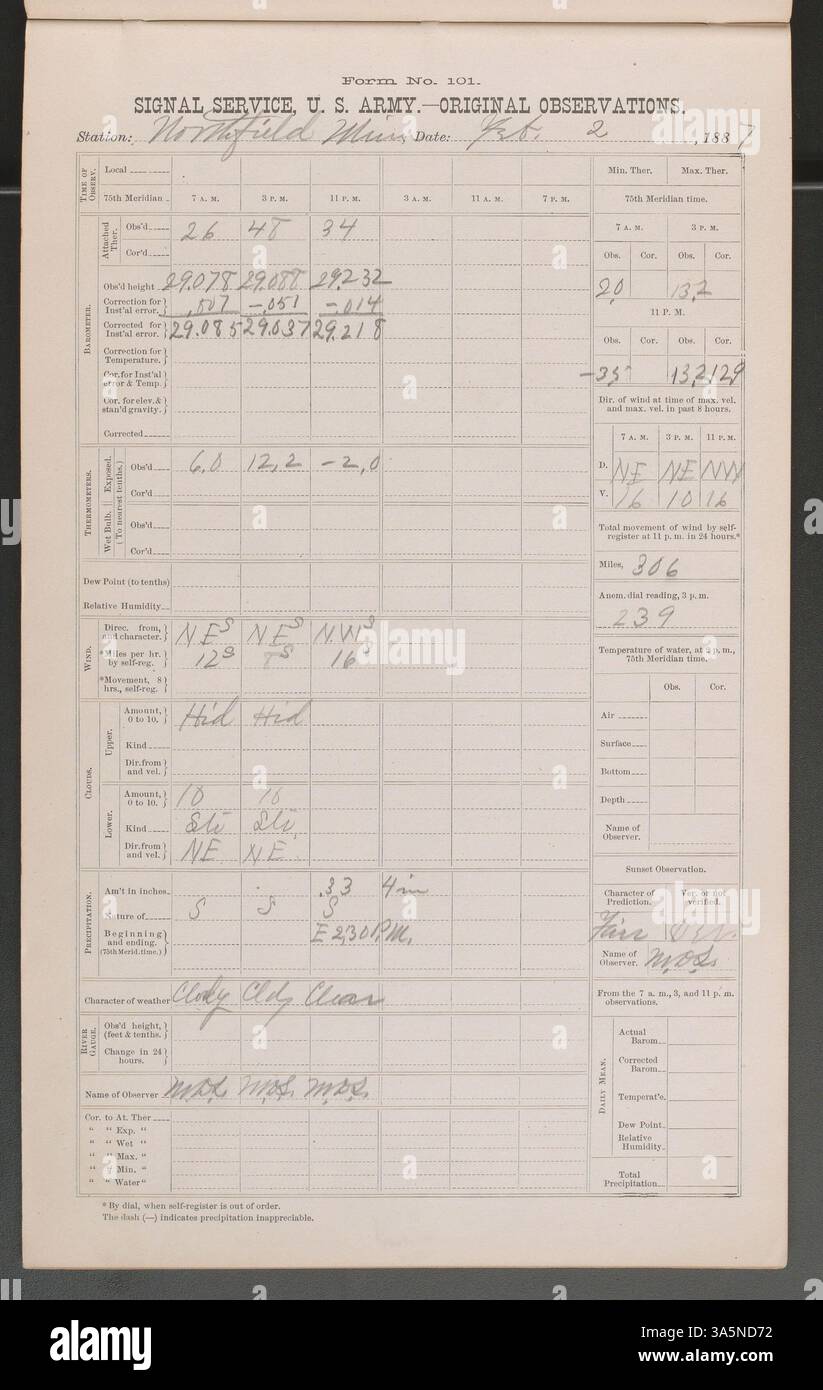 Form No. 101.
SIGNAL SERVICE, U. S. ARMY.—ORIGINAL OBSERVATIONS.
Station: Northfield Minn Date: Feb. 2, 1887
TIME OF OBSERV.
Local
75th Meridian 7 A. M. 3 P. M. 11 P. M. 3 A. M. 11 A. M. 7 P. M.
Attached Ther.
Obs'd 26 48 34
Cor'd
BAROMETER.
Obs'd height 29.078 29.088 29.232
Correction for Inst'al error. .007 -.051 -.014
Corrected for Inst'al error. 29.085 29.037 29.218
Correction for Temperature.
Cor. for Inst'al error & Temp.
Cor. for elev. & stan'd gravity.
Corrected
THERMOMETERS.
(To nearest tenths.)
Exposed.
Obs'd 6.0 12.2 -2.0
Cor'd
Wet Bulb.
Obs'd
Cor'd
Dew Point (to tenths)
Relative Humidity
WIND.
Direc. from, and character. NE S NE S NW S
*Miles per hr. by self-reg. 12 S 8 S 16 S
*Movement, 8 hrs., self-reg.
CLOUDS.
Upper.
Amount, 0 to 10. Hid Hid
Kind
Dir. from and vel.
Lower.
Amount, 0 to 10. 10 10
Kind Sti Sti
Dir. from and vel. NE NE
PRECIPITATION.
Am't in inches .33 4 in
Nature of S S S
Beginning and ending. (75th Merid. time.) E 2.30 P.M.
Character of weather Cldy Cldy Clear
RIVER GAUGE.
Obs'd height, (feet & tenths.
Change in 24 hours.
Name of Observer
Cor. to At. Ther
" " Exp. "
" " Wet "
" " Max. "
" " Min. "
" " Water "
* By dial, when self-register is out of order.
The dash (—) indicates precipitation inappreciable.
Min. Ther. Max. Ther.
75th Meridian time.
7 A. M. 3 P. M.
Obs. Cor. Obs. Cor.
2.0 13.2
11 P. M.
Obs. Cor. Obs. Cor.
-3.5 13.2 12.9
Dir. of wind at time of max. vel. and max. vel. in past 8 hours.
7 A. M. 3 P. M. 11 P. M.
D. NE NE NW
V. 16 10 16
Total movement of wind by self-register at 11 p. m. in 24 hours.*
Miles, 306
Anem. dial reading, 3 p. m.
239
Temperature of water, at 2 p. m., 75th Meridian time.
Obs. Cor.
Air
Surface
Bottom
Depth
Name of Observer.
Sunset Observation.
Character of Prediction. Ver. or not verified.
Fair Ver.
Name of Observer.
From the 7 a. m., 3, and 11 p. m. observations.
DAILY MEAN.
Actual Barom
Corrected Barom
Temperat'e.
Dew Point
Relative Humidity
Total Precipitation.
alamy
a
Image ID: 3A5ND72
www.alamy.com